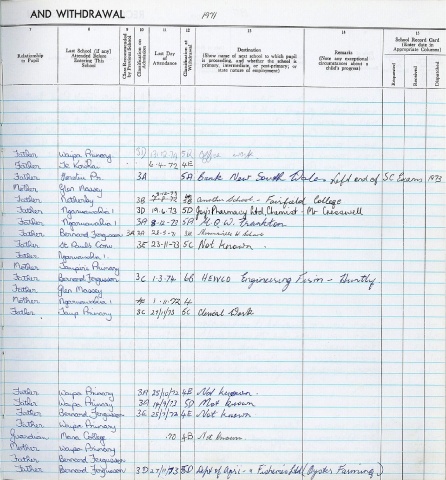 AND WITHDRAWAL 1971
7 8 9 10 11 12 13 14 15
Relationship to Pupil
Last School (if any) Attended Before Entering This School
Class Recommended by Previous School
Classification on Admission
Last Day of Attendance
Classification at Withdrawal
Destination
(Show name of next school to which pupil is proceeding, and whether the school is primary, intermediate, or post-primary; or state nature of employment)
Remarks
(Note any exceptional circumstances about a child's progress)
School Record Card
(Enter date in Appropriate Columns)
Requested
Received
Despatched
Father Waipa Primary 3D 5K Office work
Father Te 6-4-72 4E
Father Pr. 3A 5A Bank New South Wales Left end of SC Exams 1973
Mother Glen Massey
Father Netherby 3B 7-8-72 3B Another School - Fairfield College
Father Ngaruawahia 3D 19-6-73 5D Jay's Pharmacy Ltd, Chemist - Mr Cresswell
Father Ngaruawahia 3A 8-12-73 5A M.O.W. Frankton
Father Bernard Fergusson 3A
Father St Pauls Conv. 3E 23-11-73 5C Not known.
Father Ngaruawahia
Mother Primary
Father Bernard Fergusson 3C 1-3-74 6B HENCO Engineering Firm - Huntly
Father Glen Massey
Mother Ngaruawahia 1-11-72 4
Father Primary 3C 27/11/73 5C Clerical Work
Father Waipa Primary 3A 25/10/72 4E Not known.
Father Waipa Primary 3A 14/9/73 5D Not known
Father Bernard Fergusson 3G 25/7/72 4E Not known
Father Waipa Primary
Guardian Mana College .70 4B Not known
Mother Waipa Primary
Father Bernard Fergusson
Father Bernard Fergusson 3D 27/11/73 5D Dept of Agri. & Fisheries Ltd (Oyster Farming)